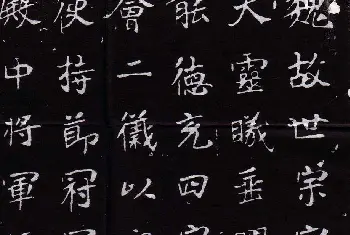 魏故世宗
靈曦垂
德充四
會二儀以
使持節冠
殿中將軍